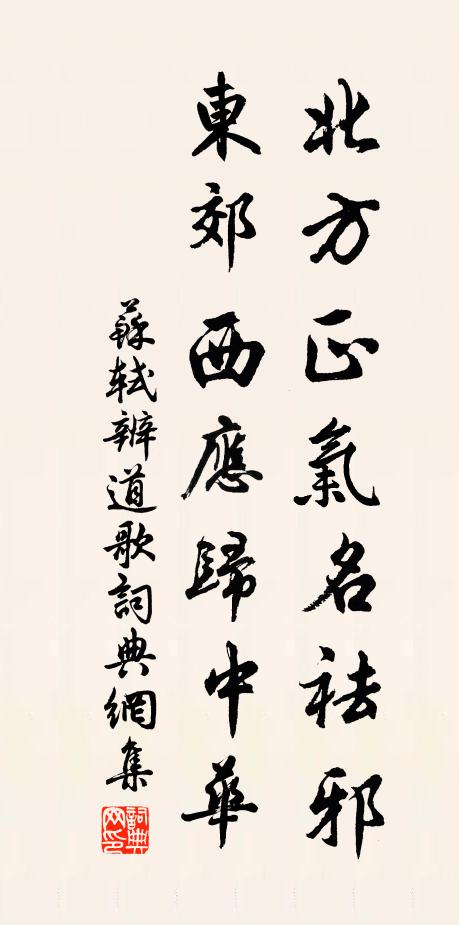 北方正氣名祛邪
東郊西應歸中華
蘇軾辨道歌詞典網集
詞典网印